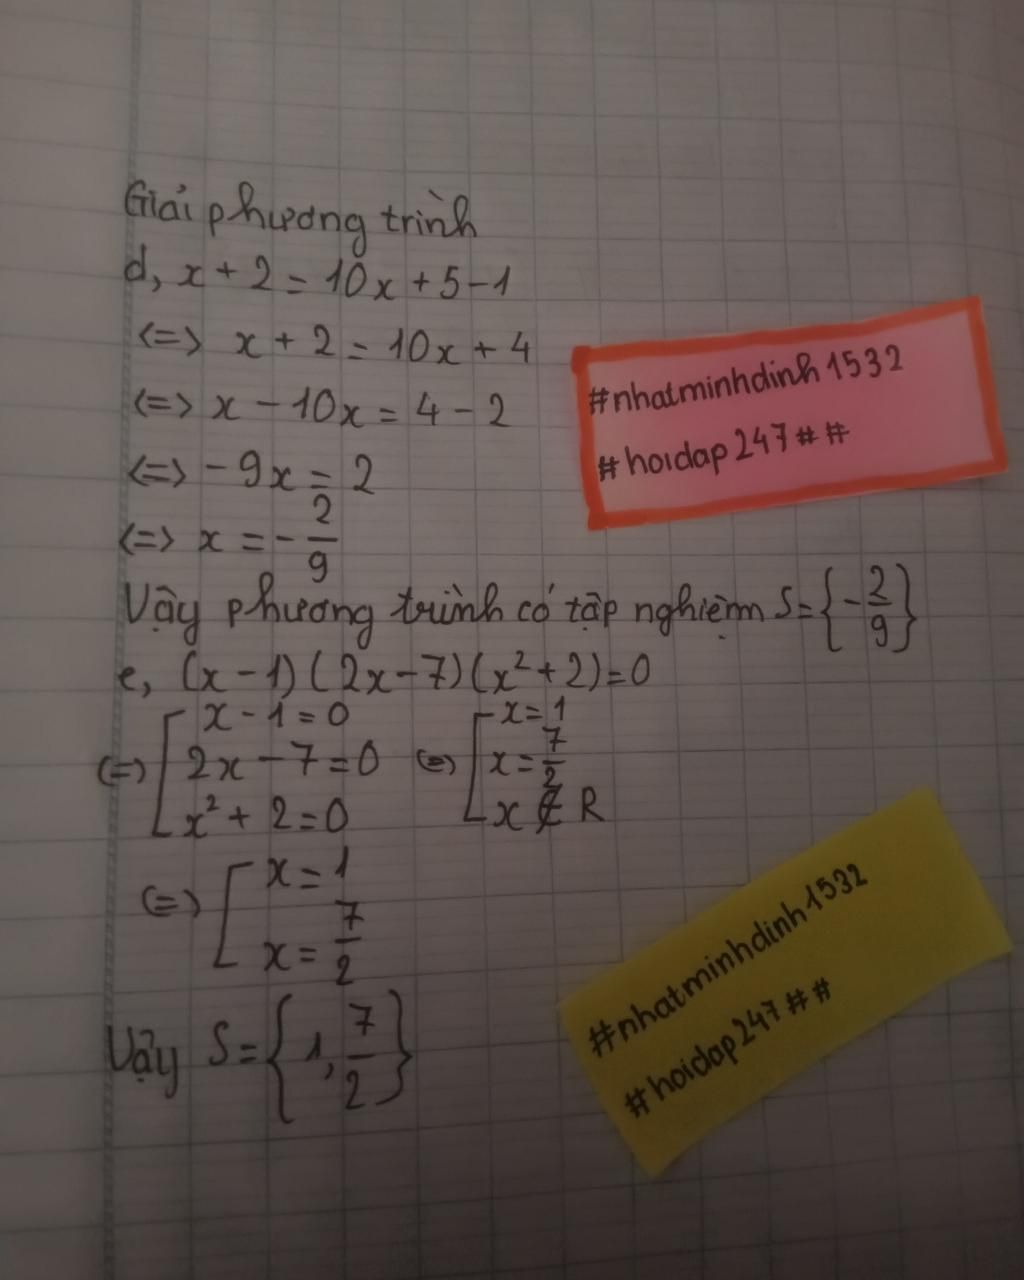 Giải phương trình
d, x + 2 = 10x + 5 - 1
<=> x + 2 = 10x + 4
<=> x - 10x = 4 - 2
<=> - 9x = 2
<=> x = - 2/9
Vậy phương trình có tập nghiệm S = { - 2/9 }
e, (x - 1) ( 2x - 7) (x² + 2) = 0
(=) [ x - 1 = 0 (=) [ x = 1
2x - 7 = 0 x = 7/2
x² + 2 = 0 x ∉ R
(=) [ x = 1
x = 7/2
Vậy S = { 1, 7/2 }
#nhatminhdinh1532
#hoidap247##
#nhatminhdinh1532
#hoidap247##